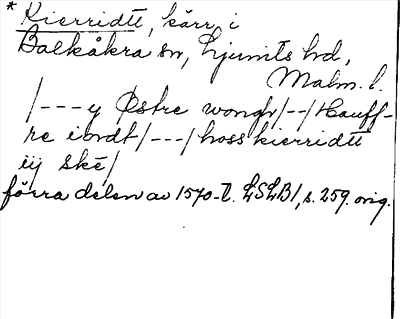 * Kierridtt, kärr, i
Balkåkra sn, Ljunits hd,
Malm. l.
/---y Østre wongh/--/Hauff-
re iordt/---/hoss kierridtt
iij skē/
förra delen av 1570-t. LSLB1, s. 259. orig.